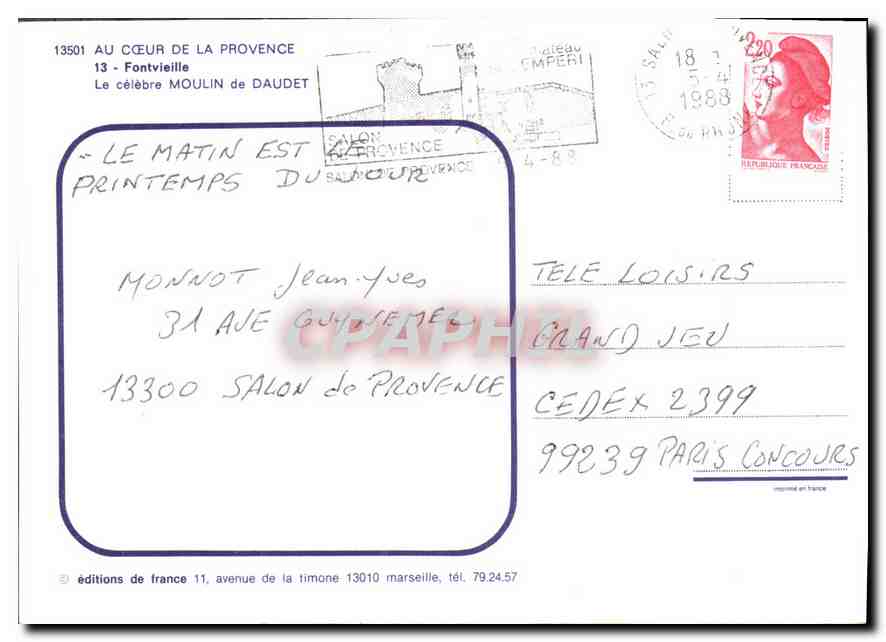 13501 AU CŒUR DE LA PROVENCE
13 - Fontvieille
Le célèbre MOULIN de DAUDET
Château
EMPERI
SALON
DE PROVENCE
SALON DE PROVENCE
4-88
13 SALON
18
5-4
1988
B. DU RHONE
2,20
POSTES
REPUBLIQUE FRANÇAISE
- LE MATIN EST LE
PRINTEMPS DU JOUR
MONNOT Jean-Yves
31 AVE GUYNEMER
13300 SALON de PROVENCE
CPAPHIL
TELE LOISIRS
GRAND JEU
CEDEX 2399
99239 PARIS CONCOURS
imprimé en france
© éditions de france 11, avenue de la timone 13010 marseille, tél. 79.24.57